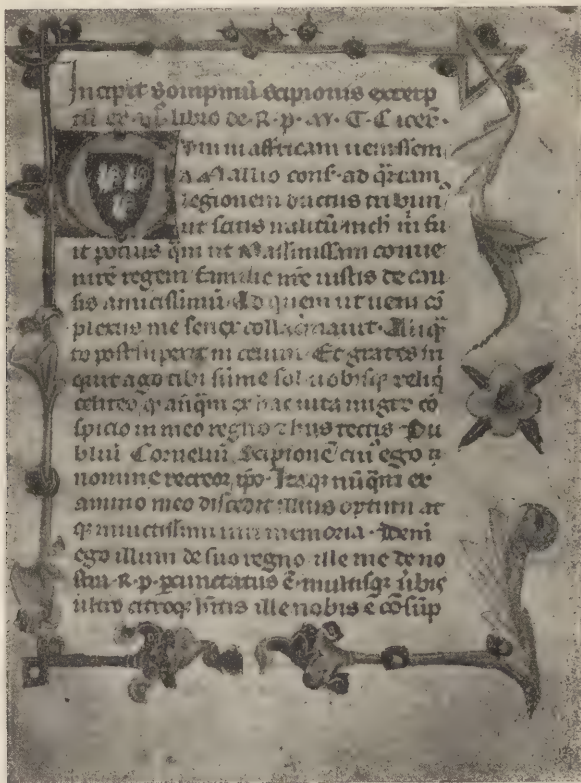 Incipit sompniū scipionis excerp
tū libro de R. p. M. T. Cicer.
um in affricam uenissem
a Mallio cons. ad q̄rtam
legionem ductus tribun,
ut scitis militū mch in fu
it pocius q̄m ut Massinissam conue
nirē regem familie mr̄e iustis de cau
sis amicissimū. Ad quem ut ueni cō
plexus me senex collacrimauit. Aliq̄
to post suspexit in celum. Et grates in
quit ago tibi sūme sol uobisq; reliq̇
celites q̄ anq̄m ex hac uita migro cō
spicio in meo regno & hiis tectis Pu
bliū Corneliū Scipionē cui' ego a
nomine recreor ip̄o. Itaq; nūq̄m ex
animo meo discedit illius optimi at
q; inuictissimi uiri memoria. Dein
ego illum de suo regno ille me de no
stra R. p. p̄cunctatus ē. multisq; ūbis
ultro citroq; h̄itis ille nobis ē cōsūp